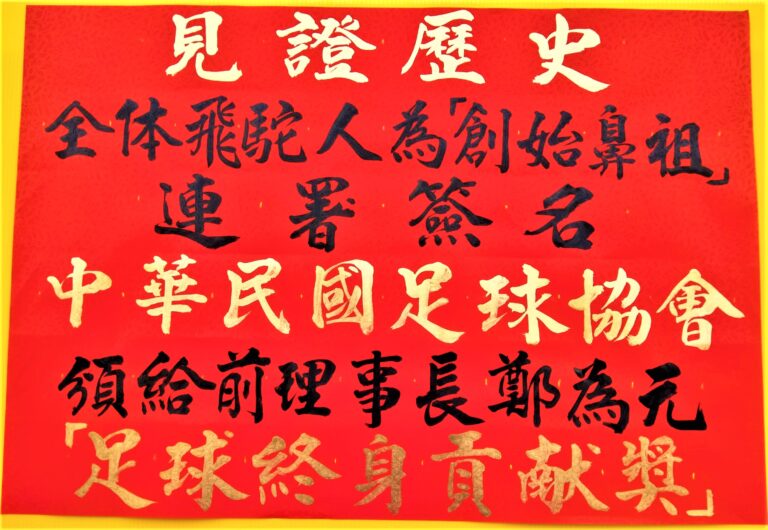 見證歷史
全体飛駝人為「創始鼻祖」
連署簽名
中華民國足球協會
頒給前理事長鄭為元
「足球終身貢献獎」